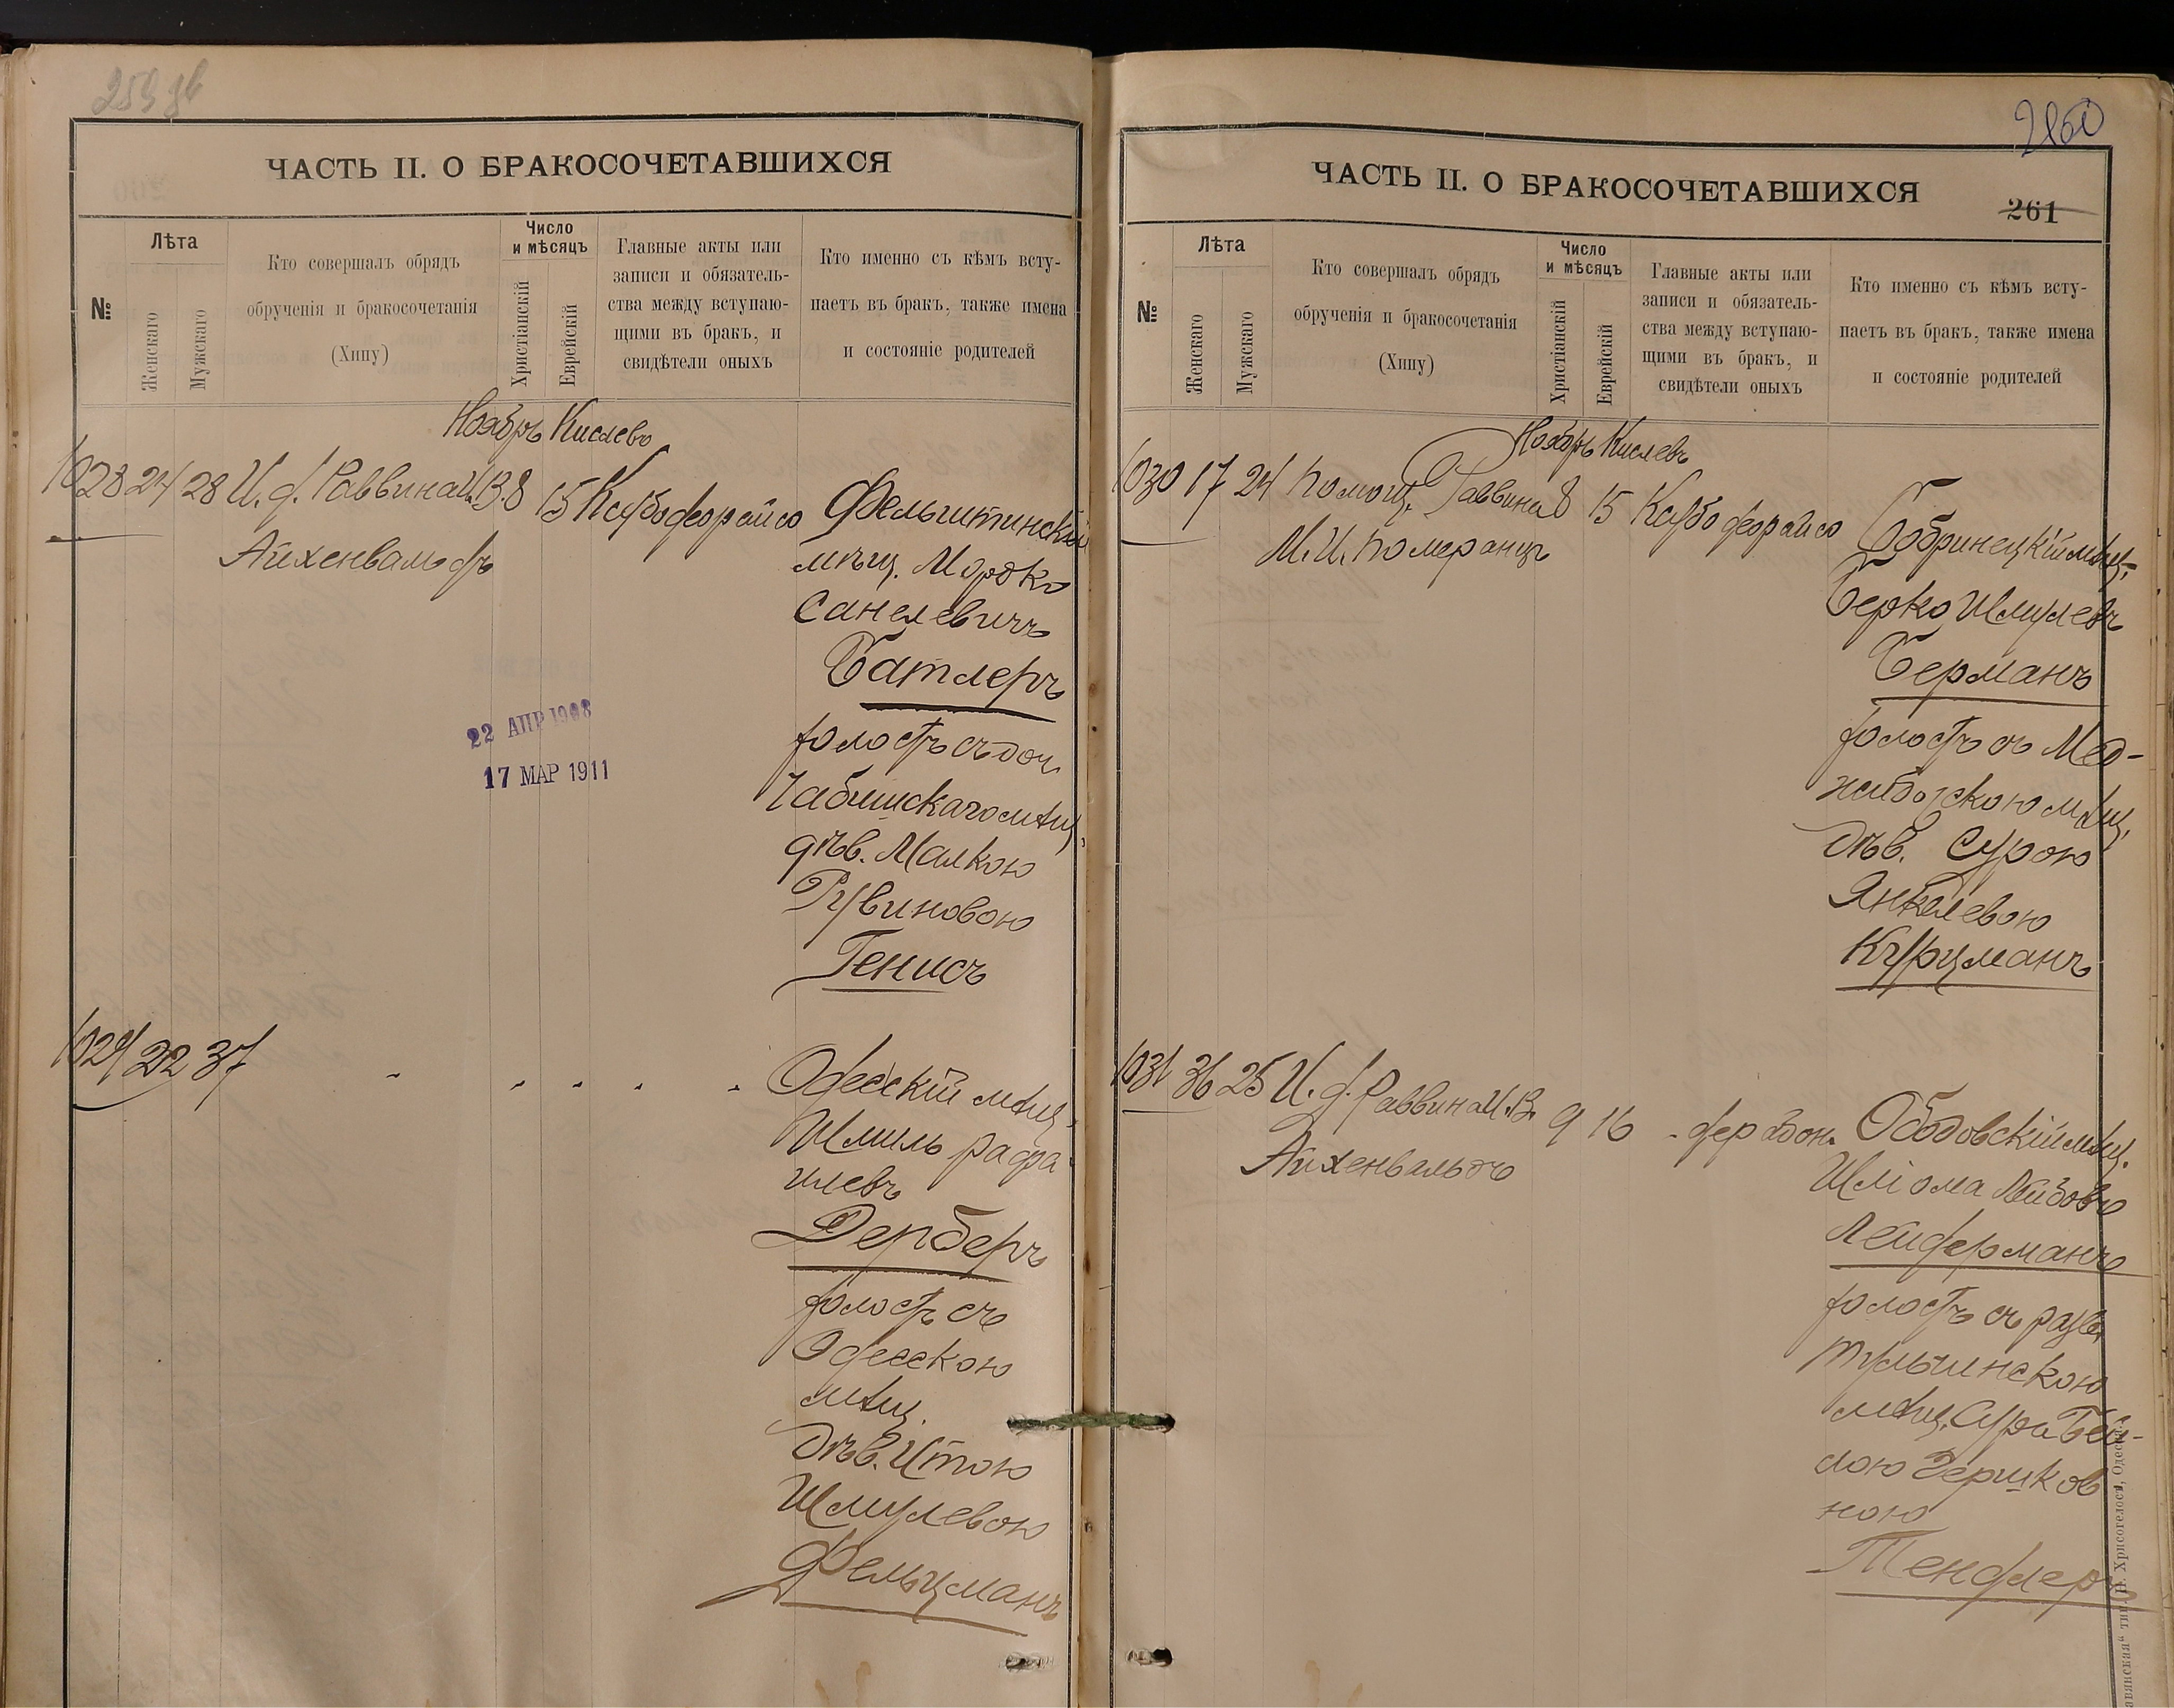 259 об
ЧАСТЬ II. О БРАКОСОЧЕТАВШИХСЯ
№
Лѣта
Женскаго
Мужскаго
Кто совершалъ обрядъ
обрученія и бракосочетанія
(Хипу)
Число
и мѣсяцъ
Христіанскій
Еврейскій
Главные акты или
записи и обязатель-
ства между вступаю-
щими въ бракъ, и
свидѣтели оныхъ
Кто именно съ кѣмъ всту-
паетъ въ бракъ, также имена
и состояніе родителей
Ноябрь Кислевъ
1028 24 28 И. д. Раввина И.В. 8 15 Ксубо дерайсо Фельштинскій
Айхенвальдъ
мѣщ. Мордко
Санелевичъ
Батлеръ
22 АПР 1908
холостъ съ доч.
17 МАР 1911
мѣщ.
дѣв. Малкою
Рувиновою
Генисъ
1029 22 37 " " " " " Одесскій мѣщ.
Шмиль Рафа-
илевъ
Дерберъ
холостъ съ
Одесскою
мѣщ.
дѣв. Итою
Шмулевою
Фельцманъ
260
ЧАСТЬ II. О БРАКОСОЧЕТАВШИХСЯ
261
№
Лѣта
Женскаго
Мужскаго
Кто совершалъ обрядъ
обрученія и бракосочетанія
(Хипу)
Число
и мѣсяцъ
Христіанскій
Еврейскій
Главные акты или
записи и обязатель-
ства между вступаю-
щими въ бракъ, и
свидѣтели оныхъ
Кто именно съ кѣмъ всту-
паетъ въ бракъ, также имена
и состояніе родителей
Ноябрь Кислевъ
1030 17 24 Помощ. Раввина 8 15 Ксубо дерайсо Бобринецкій мѣщ.
М. И. Померанцъ
Берко Шмулевъ
Берманъ
холостъ съ Мед-
жибожскою мѣщ.
дѣв. Сурою
Янкелевою
Курцманъ
1031 36 25 И. д. Раввина И.В. 9 16 " дерабон. Ободовскій мѣщ.
Айхенвальдъ
Шліома Лейбовъ
Лейдерманъ
холостъ съ разв.
Тульчинскою
мѣщ. Сура Бей-
лою Гершков
ною
Тендлеръ
тип. Н. Хрисогелосъ, Одесса.